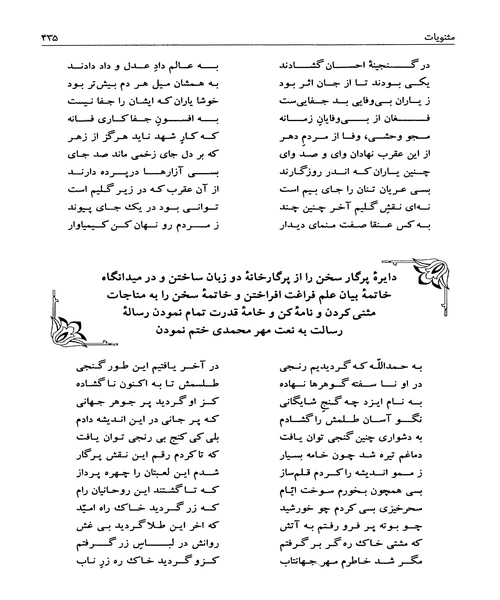 مثنویات
۴۳۵
در گنجینهٔ احسان گشادند
به عالم دادِ عدل و داد دادند
یکی بودند تا از جان اثر بود
به همشان میل هر دم بیش‌تر بود
ز یاران بی‌وفایی بد جفایی‌ست
خوشا یاران که ایشان را جفا نیست
فغان از بی‌وفایانِ زمانه
به افسونِ جفاکاری فسانه
مجو وحشی، وفا از مردمِ دهر
که کارِ شهد ناید هرگز از زهر
از این عقرب نهادان وای و صد وای
که بر دل جای زخمی ماند صد جای
چنین یاران که اندر روزگارند
بسی آزارها در پرده دارند
بسی عریان تنان را جای بیم است
از آن عقرب که در زیر گلیم است
نه‌ای نقشِ گلیم آخر چنین چند
توانی بود در یک جای پیوند
به کس عنقا صفت منمای دیدار
ز مردم رو نهان کن کیمیاوار
دایرهٔ پرگار سخن را از پرگارخانهٔ دو زبان ساختن و در میدانگاه
خاتمهٔ بیان علم فراغت افراختن و خاتمهٔ سخن را به مناجات
مثنی کردن و نامهٔ کن و خامهٔ قدرت تمام نمودن رسالهٔ
رسالت به نعت مهر محمدی ختم نمودن
به حمداللّه که گردیدیم رنجی
در آخر یافتیم این طور گنجی
در او نا سفته گوهرها نهاده
طلسمش تا به اکنون نا گشاده
به نام ایزد چه گنجِ شایگانی
کز او گردید پر جوهر جهانی
نگو آسان طلسمش را گشادم
که پر جانی در این اندیشه دادم
به دشواری چنین گنجی توان یافت
بلی کی کنج بی رنجی توان یافت
دماغم تیره شد چون خامه بسیار
که تا کردم رقم این نقش پرگار
ز مو اندیشه را کردم قلم‌ساز
شدم این لعبتان را چهره پرداز
بسی همچون بخورم سوخت ایّام
که تا گشتند این روحانیان رام
سحرخیزی بسی کردم چو خورشید
که زر گردید خاک راه امیّد
چو بوته پر فرو رفتم به آتش
که اخر این طلا گردید بی غش
که مشتی خاک ره گر بر گرفتم
روانش در لباس زر گرفتم
مگر شد خاطرم مهر جهانتاب
کزو گردید خاک ره زر ناب